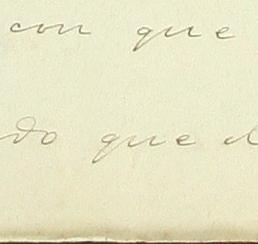 con que
do que d